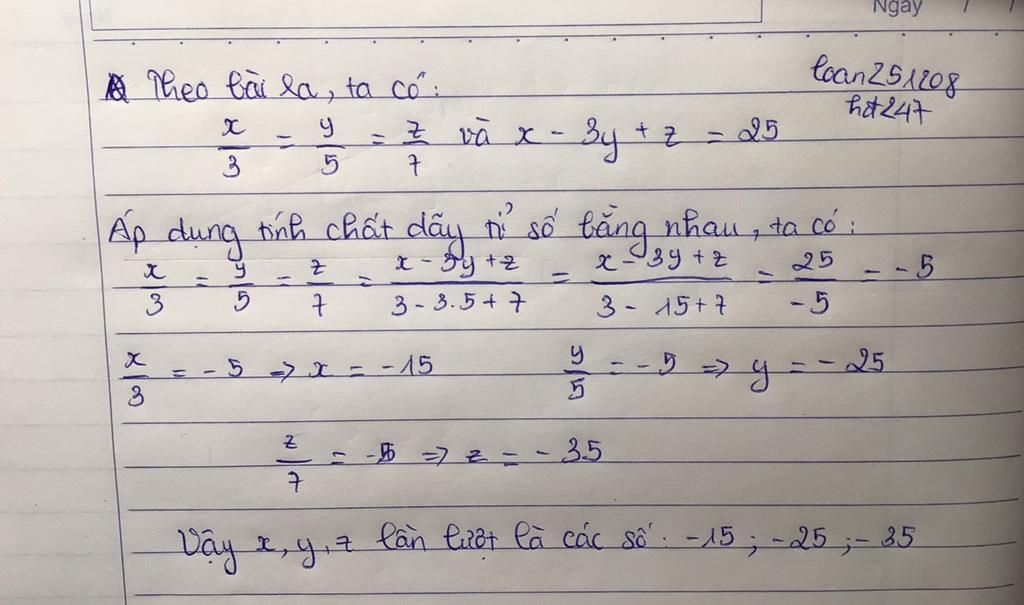 Ngày / /
Theo bài ra, ta có:
toan251208
hdt247
x/3 = y/5 = z/7 và x - 3y + z = 25
Áp dụng tính chất dãy tỉ số bằng nhau, ta có:
x/3 = y/5 = z/7 = (x - 3y + z)/(3 - 3.5 + 7) = (x - 3y + z)/(3 - 15 + 7) = 25/-5 = -5
x/3 = -5 => x = -15 y/5 = -5 => y = -25
z/7 = -5 => z = -35
Vậy x, y, z lần lượt là các số: -15 ; -25 ; -35